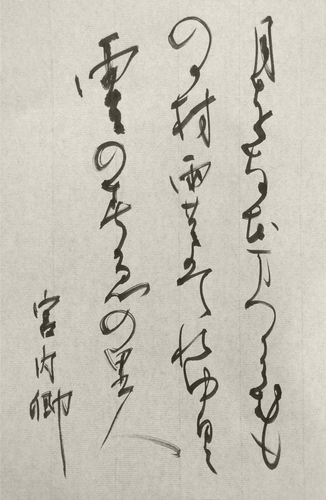 月をなほまつらむも
のか村雨のはれゆく
雲のすゑの里人
宮内卿